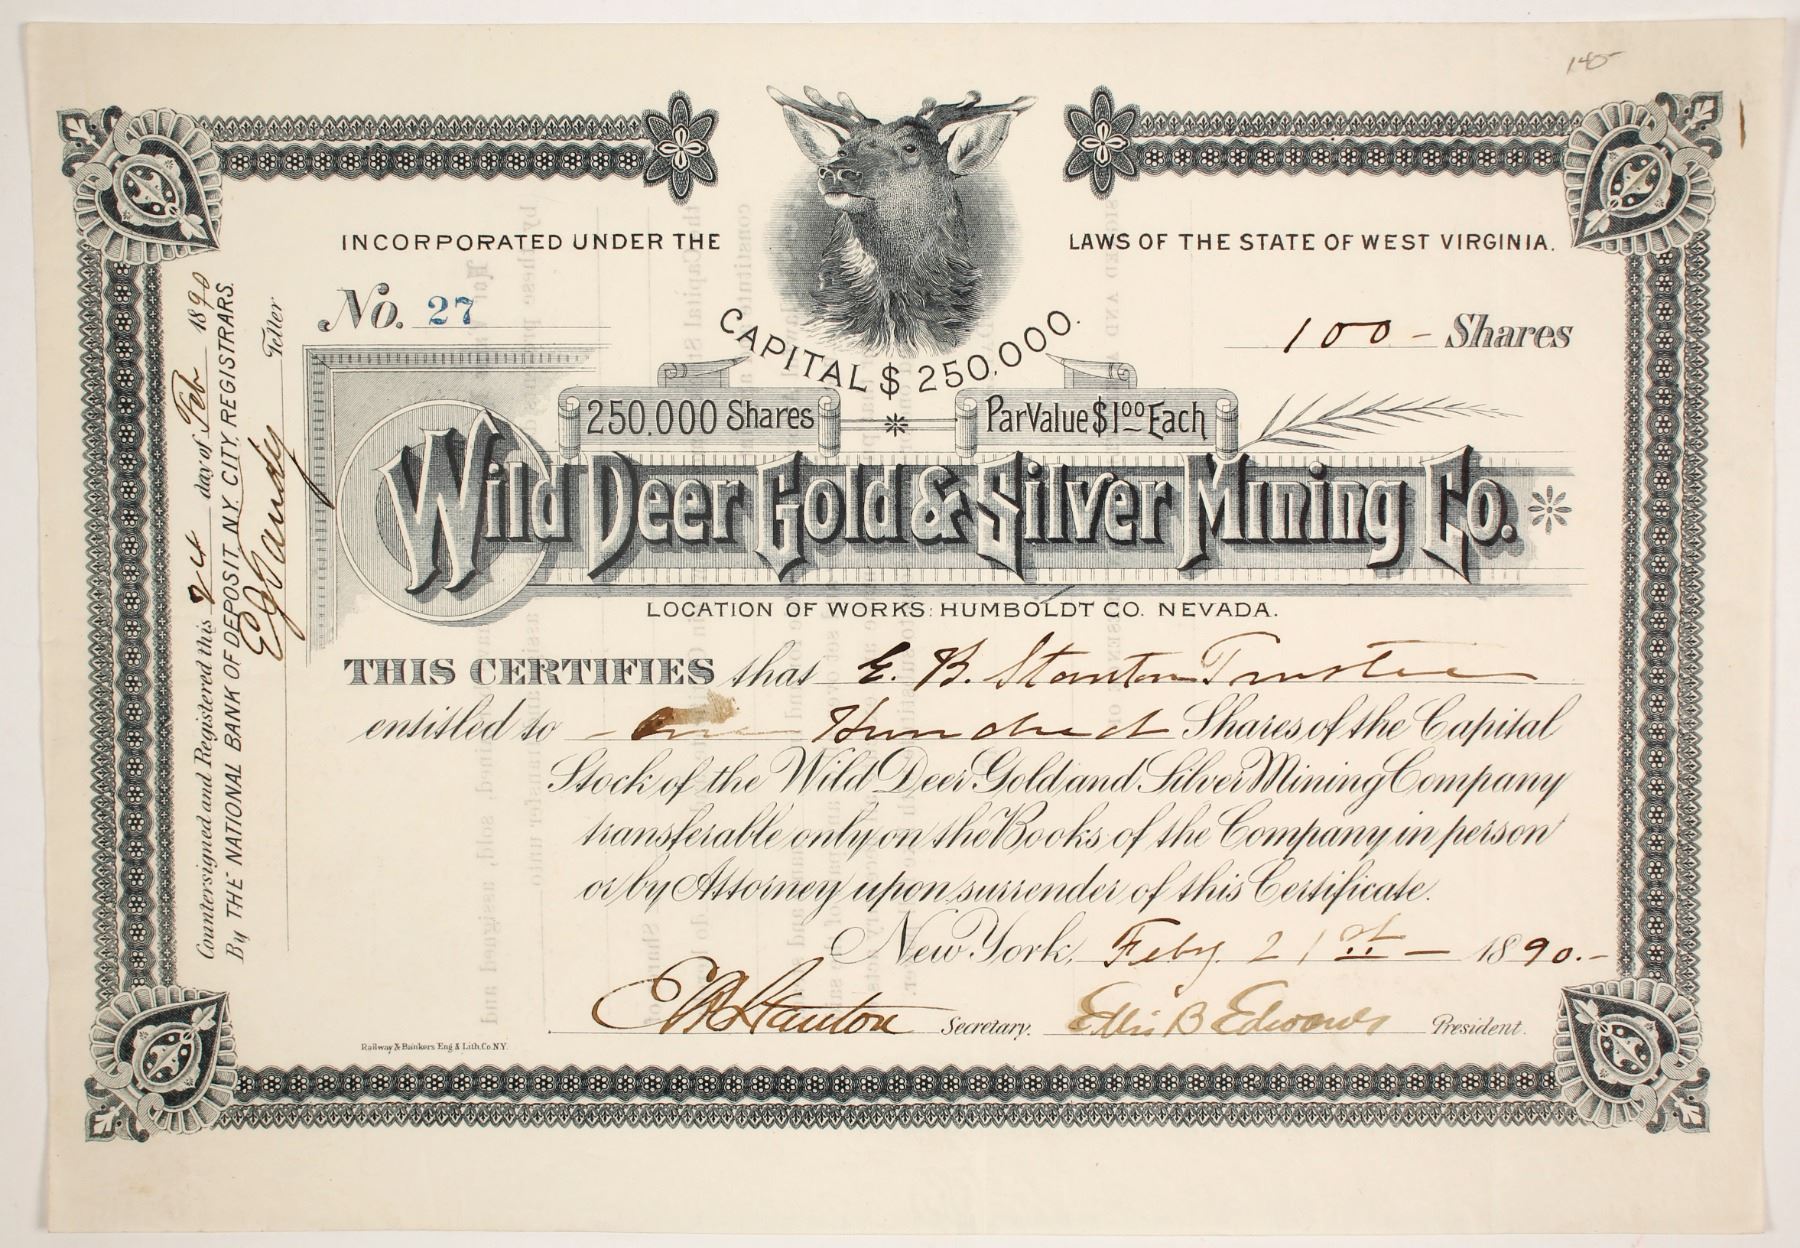 INCORPORATED UNDER THE LAWS OF THE STATE OF WEST VIRGINIA.
No. 27
100 - Shares
CAPITAL $ 250,000.
250,000 Shares * Par Value $1 00 Each
Wild Deer Gold & Silver Mining Co.
LOCATION OF WORKS: HUMBOLDT CO. NEVADA.
THIS CERTIFIES that E. B. Stanton Trustee
entitled to - One Hundred Shares of the Capital
Stock of the Wild Deer Gold and Silver Mining Company
transferable only on the Books of the Company in person
or by Attorney upon surrender of this Certificate.
New York, Feby. 21st - 1890.-
E B Stanton Secretary. Ellis B Edwards President.
Railway & Bankers Eng & Lith. Co. N.Y.
Countersigned and Registered this 24 day of Feb 1890
By THE NATIONAL BANK OF DEPOSIT, N.Y. CITY, REGISTRARS.
Teller